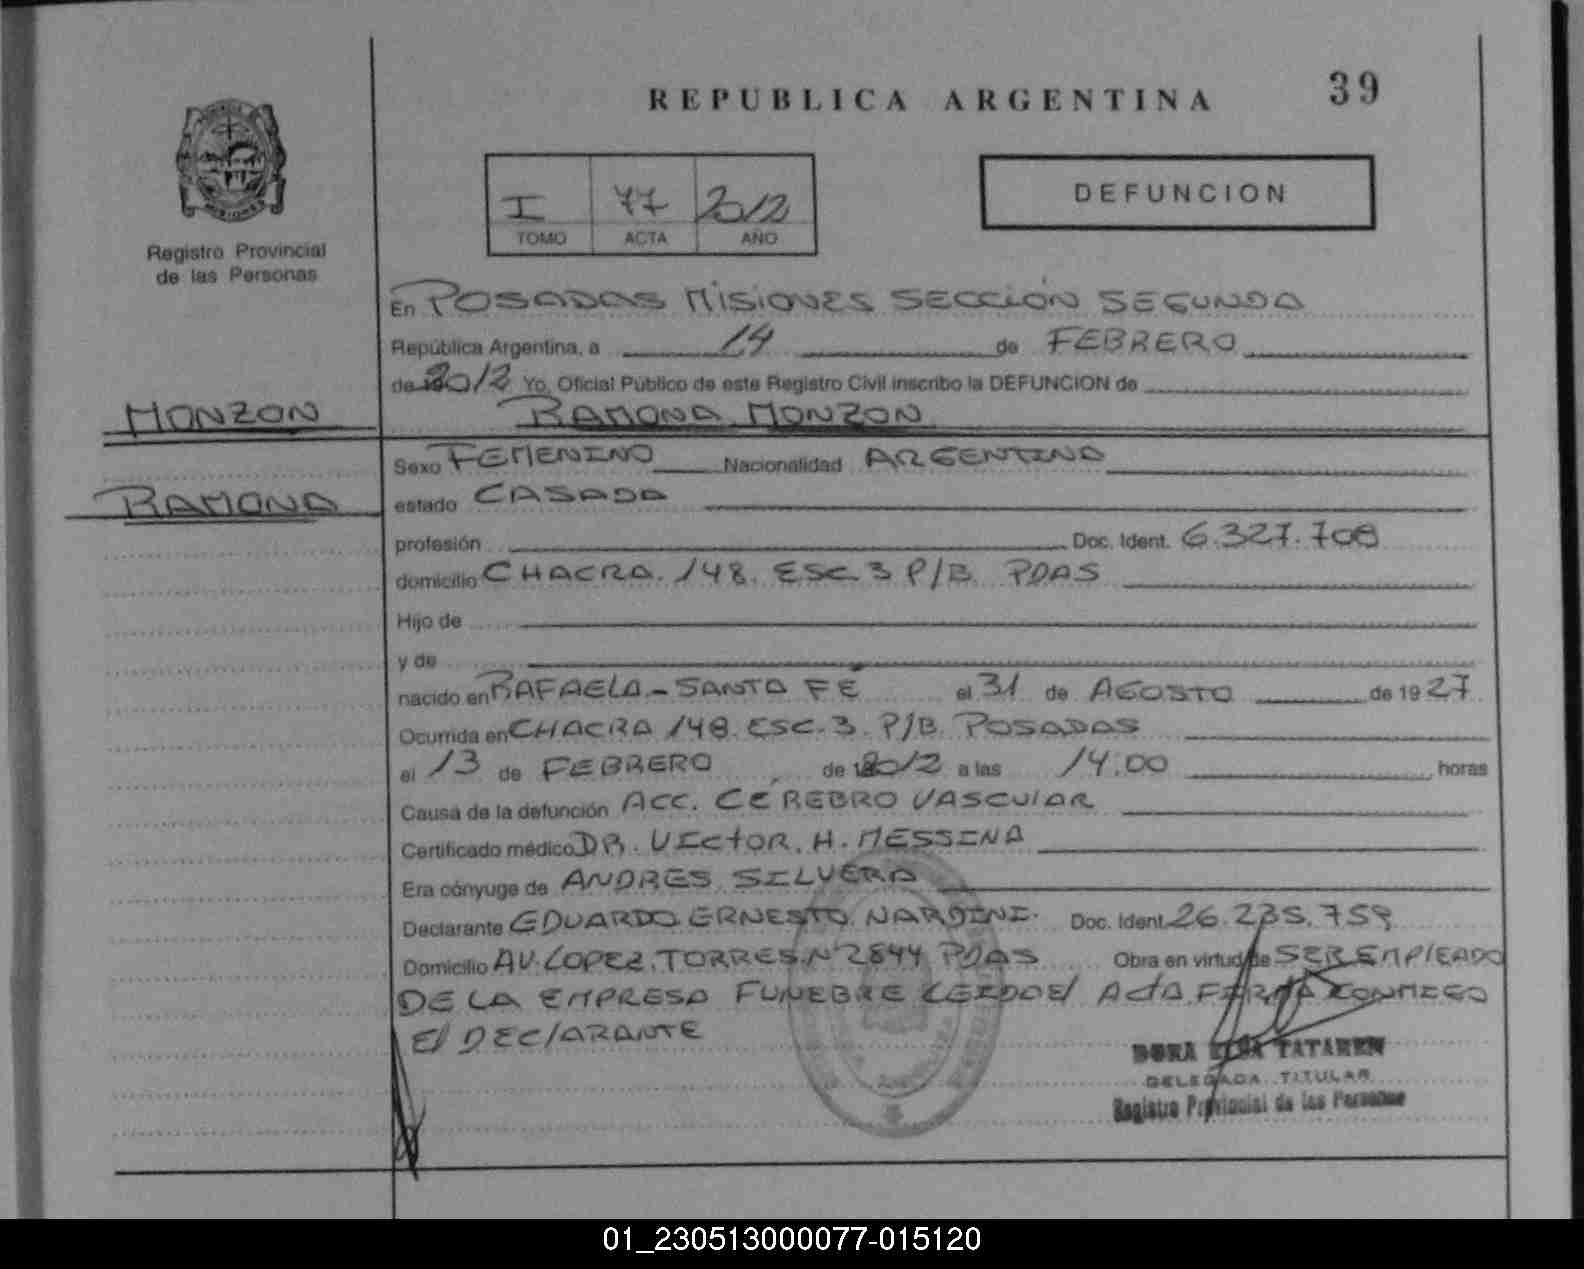 REPUBLICA ARGENTINA 39
I 77 2012
TOMO ACTA AÑO
DEFUNCION
MISIONES
Registro Provincial
de las Personas
En POSADAS MISIONES SECCIÓN SEGUNDA
República Argentina, a 14 de FEBRERO
de 2012 Yo, Oficial Público de este Registro Civil inscribo la DEFUNCION de
MONZON RAMONA MONZON
Sexo FEMENINO Nacionalidad ARGENTINA
RAMONA estado CASADA
profesión Doc. Ident. 6.327.708
domicilio CHACRA. 148. ESC. 3 P/B PDAS
Hijo de
y de
nacido en RAFAELA - SANTA FE el 31 de AGOSTO de 1927
Ocurrida en CHACRA 148. ESC. 3. P/B. POSADAS
el 13 de FEBRERO de 2012 a las 14:00 horas
Causa de la defunción ACC. CEREBRO VASCULAR
Certificado médico DR. VICTOR. H. MESSINA
Era cónyuge de ANDRES SILVERA
Declarante EDUARDO ERNESTO NARDINI. Doc. Ident. 26.235.759
Domicilio AV. LOPEZ. TORRES. Nº 2844 PDAS Obra en virtud de SER EMPLEADO
DE LA EMPRESA FUNEBRE LEIDOEl ACTA FIRMA CONMIGO
El DEClARANTE
DORA ELSA TATAREN
DELEGADA TITULAR
Registro Provincial de las Personas
01_230513000077-015120